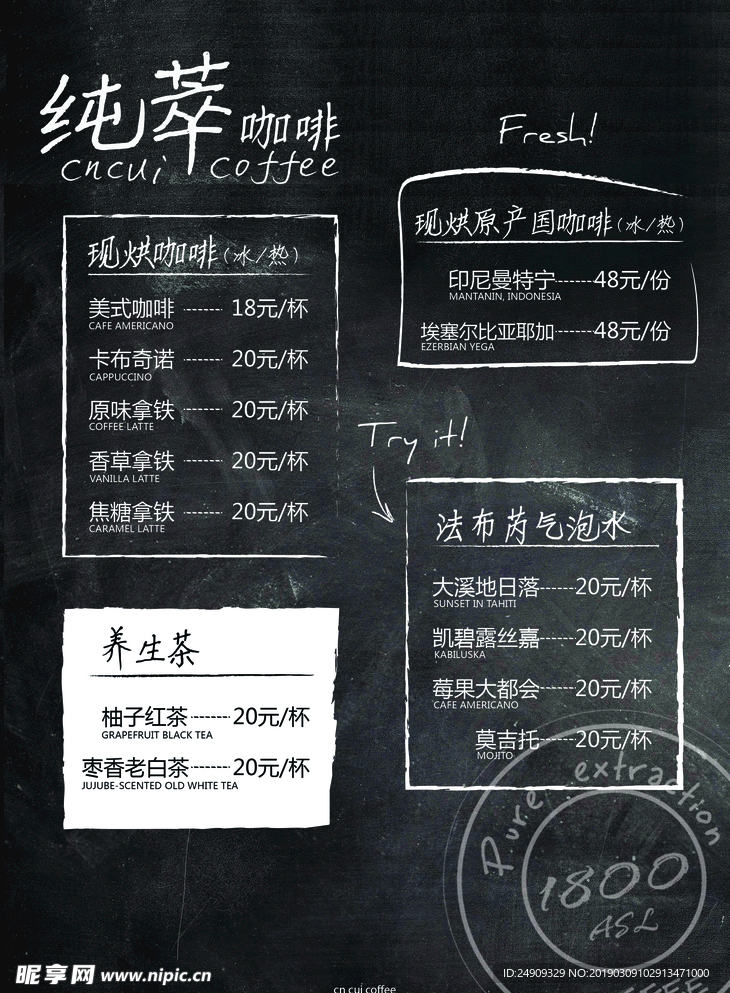 纯萃咖啡
cncui coffee
现烘咖啡(冰/热)
美式咖啡 ------- 18元/杯
CAFE AMERICANO
卡布奇诺 ------- 20元/杯
CAPPUCCINO
原味拿铁 ------- 20元/杯
COFFEE LATTE
香草拿铁 ------- 20元/杯
VANILLA LATTE
焦糖拿铁 ------- 20元/杯
CARAMEL LATTE
养生茶
柚子红茶-------20元/杯
GRAPEFRUIT BLACK TEA
枣香老白茶-------20元/杯
JUJUBE-SCENTED OLD WHITE TEA
Fresh!
现烘原产国咖啡(冰/热)
印尼曼特宁------48元/份
MANTANIN, INDONESIA
埃塞尔比亚耶加------48元/份
EZERBIAN YEGA
Try it!
法布芮气泡水
大溪地日落------20元/杯
SUNSET IN TAHITI
凯碧露丝嘉------20元/杯
KABILUSKA
莓果大都会------20元/杯
CAFE AMERICANO
莫吉托------20元/杯
MOJITO
Pure extraction
1800
ASL
昵享网 www.nipic.cn
ID:24909329 NO:20190309102913471000
cn cui coffee